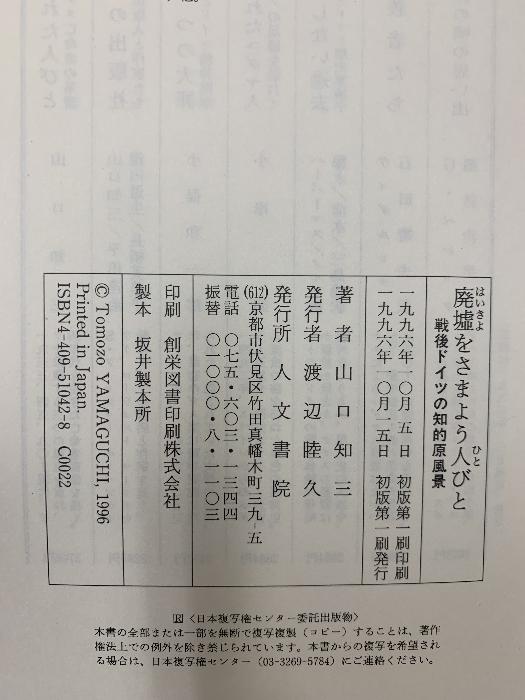 廃墟をさまよう人びと
はいきよ
ひと
戦後ドイツの知的原風景
一九九六年一〇月 五 日 初版第一刷印刷
一九九六年一〇月一五日 初版第一刷発行
著者 山口知三
発行者 渡辺睦久
発行所 人文書院
(612)京都市伏見区竹田真幡木町三九-五
電話 〇七五・六〇三・一三四四
振替 〇一〇〇〇・八・一一〇三
印刷 創栄図書印刷株式会社
製本 坂井製本所
© Tomozo YAMAGUCHI, 1996
Printed in Japan.
ISBN4-409-51042-8 C0022
R〈日本複写権センター委託出版物〉
本書の全部または一部を無断で複写複製(コピー)することは、著作
権法上での例外を除き禁じられています。本書からの複写を希望され
る場合は、日本複写権センター(03-3269-5784)にご連絡ください。